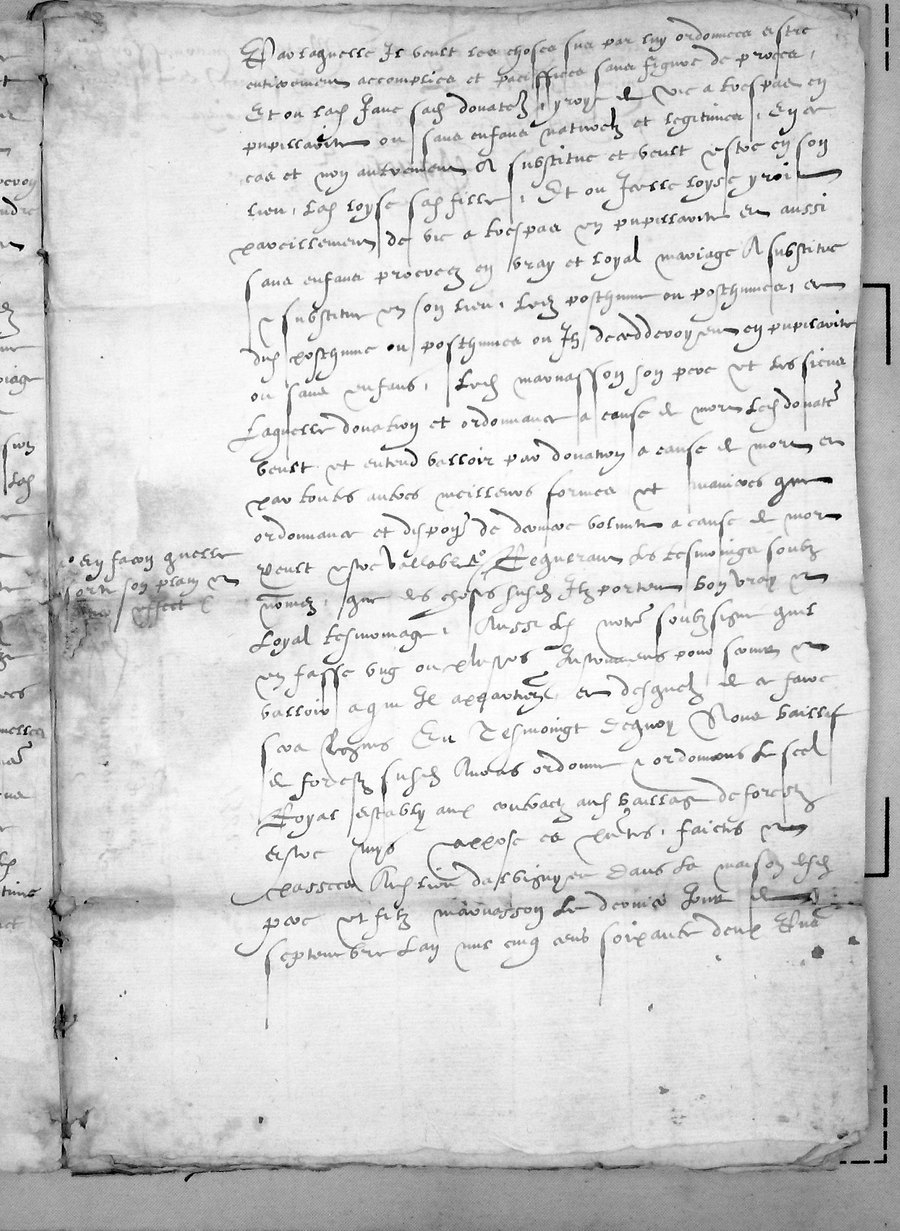 Par laquelle Il veult les choses sus par luy ordonnees estre
entierement accomplies et paciffiees sans figure de proces,
Et ou lad Jane sad donatn yroit de vie a trespas en
pupillarite ou sans enfans naturelz et legitimes, En ce
cas et non autrement A substitue et veult estre en son
lieu, lad loyse sad fille, Et ou Jcelle loyse yroit
pareillement de vie a trespas en pupillarite et aussi
sans enfans procreez en vray et loyal mariage A substitue
et substitue en son lieu, posthume ou posthumes, et
dud posthume ou posthumes ou Ilz decedderoyent en pupilarite
ou sans enfans, led marnasson son pere et les siens
Laquelle donation et ordonnance a cause de mort led donatr
veult et entend valloir par donation a cause de mort et
par toutes autres meilleurs formes et manieres que
ordonnance et dispon de derniere volunte a cause de mort
peult estre vallable Requerant les tesmoings soubz
nomez, que des choses susd Ilz portent bon vray et
Loyal tesmoinage, Aussi led notre soubzsigne quil
en fasse ung ou plusrs Instrumens pour servir et
valloir a qui Il apartiendra, et desquelz de ce faire
sera requis En Tesmoingt dequoy Nous bailly
de forestz susd Avons ordonne et ordonnons le scel
Royal estably aux contractz aud bailliage de forestz
estre mys et appose es pntes, faictes et
passees Aud lieu dans la maison desd
pere et filz marnasson le dernier Jour de
septembre Lan mil cinq cens soixante deux
en facon quelle
sorte son plain et
effect